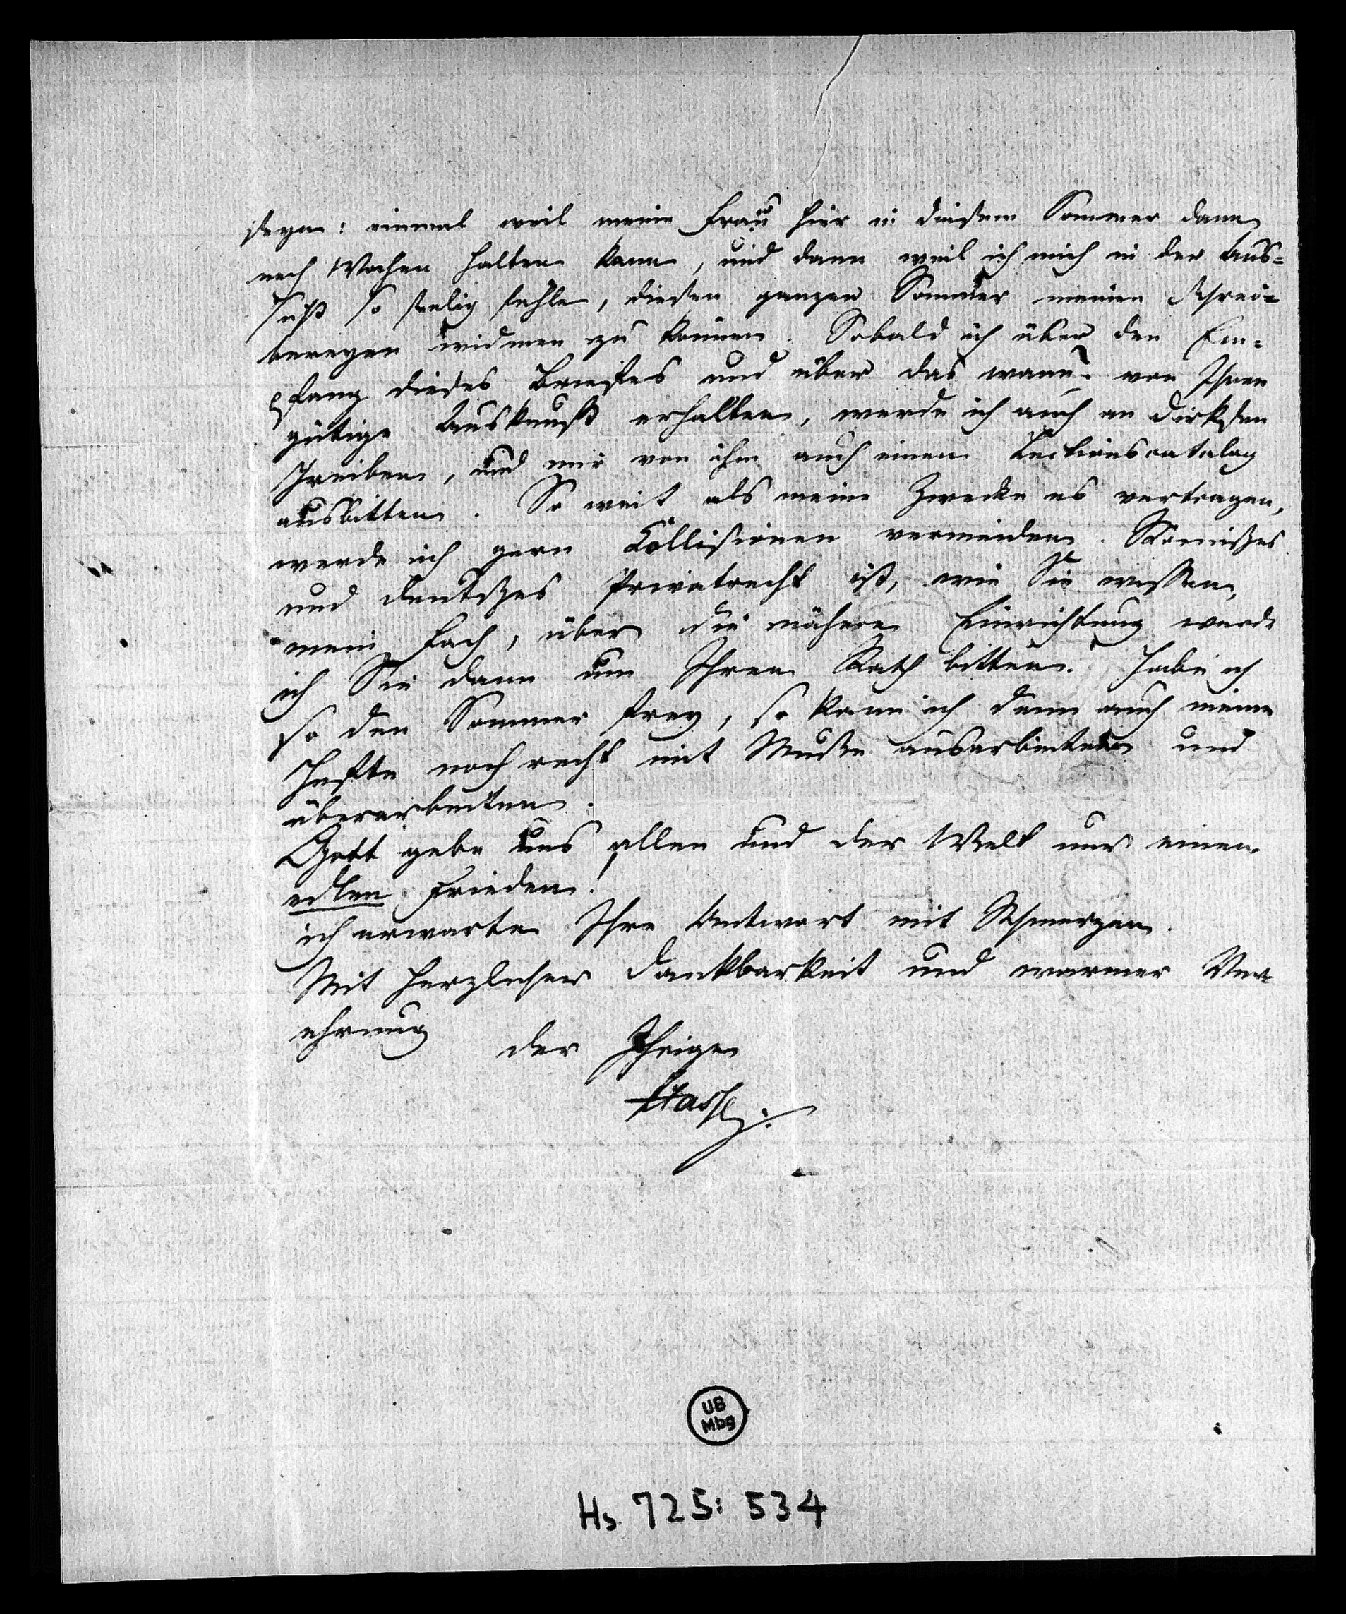 seyn: einmal weil meine Frau hier in diesem Sommer dann
noch Wochen halten kann, und dann weil ich mich in der Aus=
sicht so seelig fühle, diesen ganzen Sommer meinen Schrei=
bereyen widmen zu können. Sobald ich über den Em=
pfang dieses Briefes und über das wann? von Ihnen
gütige Auskunft erhalten, werde ich auch an Dirksen
schreiben, und mir von ihm auch einen Lectionscatalog
ausbitten. So weit als meine Zwecke es vertragen,
werde ich gern Collisionen vermeiden. Römisches
und deutsches Privatrecht ist, wie Sie wissen,
mein Fach, über die nähere Einrichtung werde
ich Sie dann um Ihren Rath bitten. Habe ich
so den Sommer frey, so kann ich denn auch meine
Hefte noch recht mit Muße ausarbeiten und
überarbeiten.
Gott gebe uns allen und der Welt nur einen
edlen Frieden!
ich erwarte Ihre Antwort mit Schmerzen.
Mit herzlicher Dankbarkeit und warmer Ver=
ehrung
der Ihrige
Hasse
UB
Mbg
Hs 725: 534